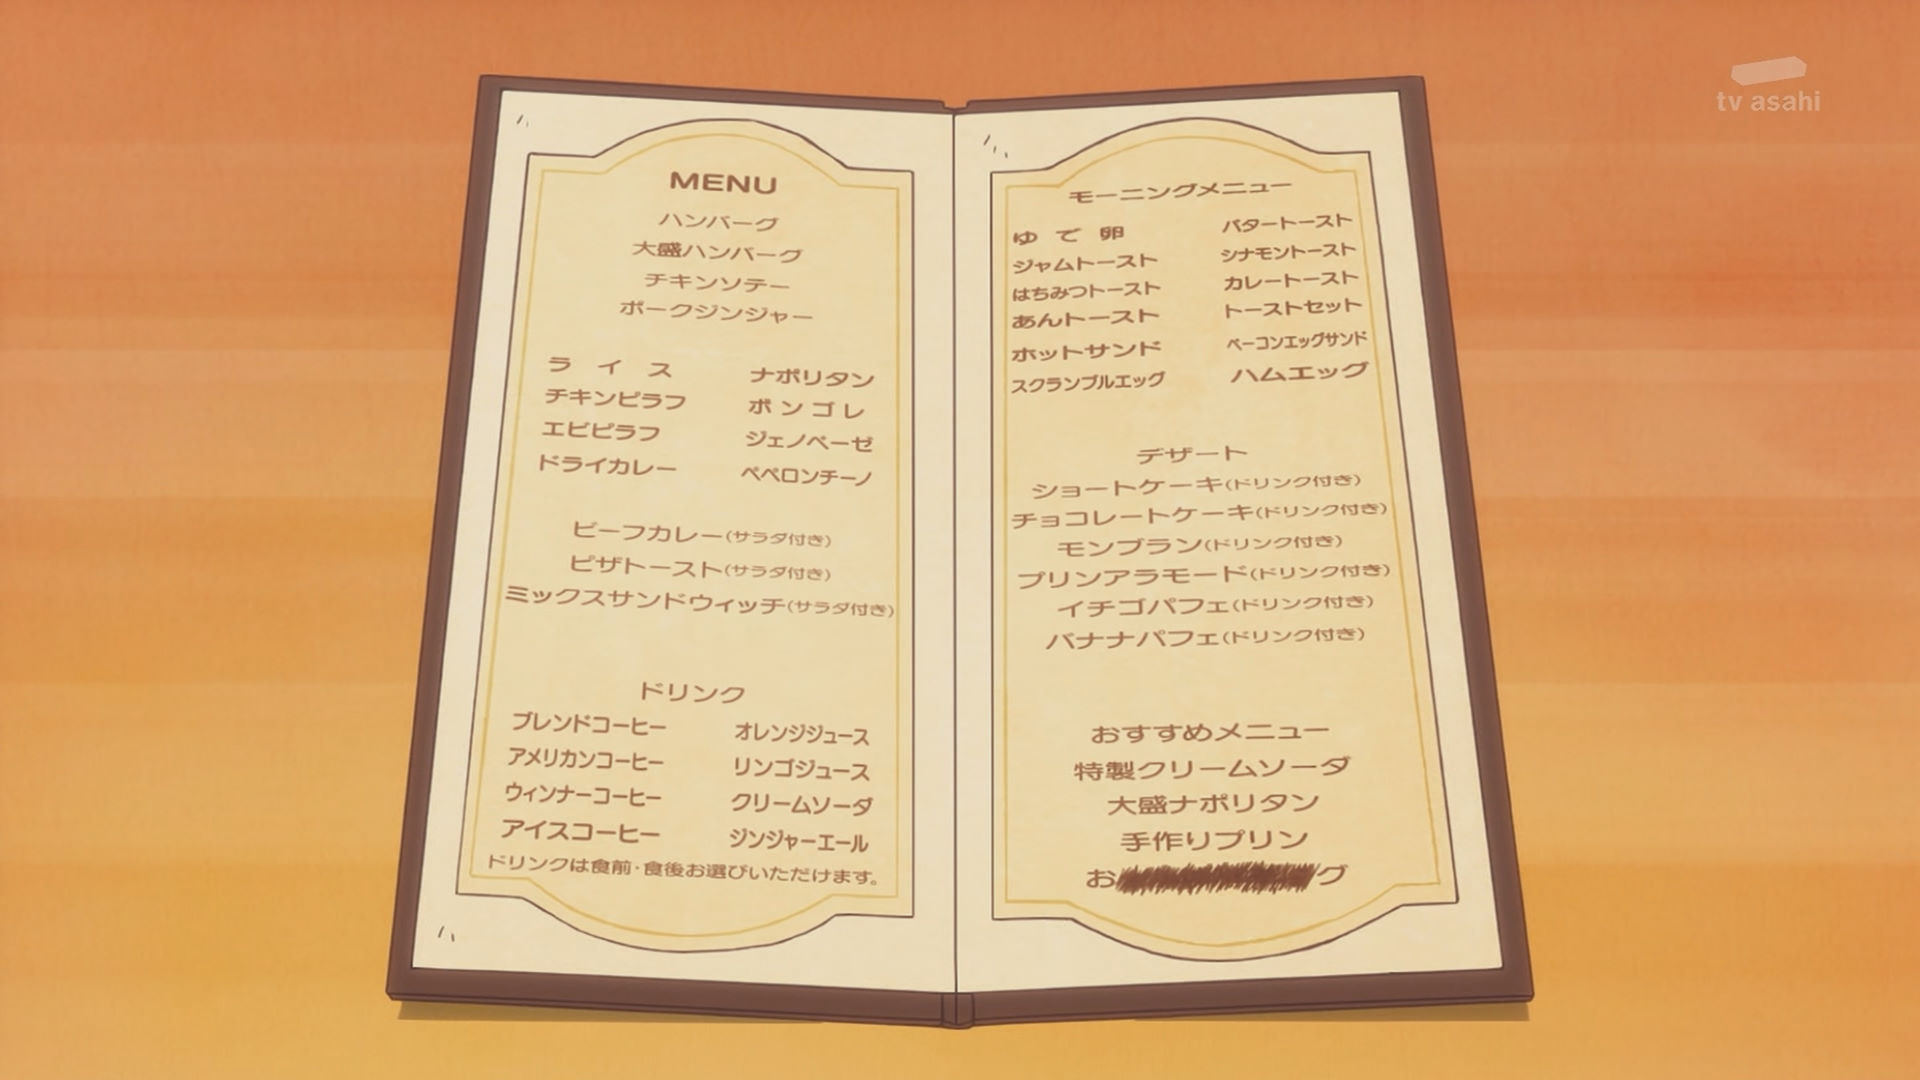 tv asahi
MENU
ハンバーグ
大盛ハンバーグ
チキンソテー
ポークジンジャー
ライス
チキンピラフ
エビピラフ
ドライカレー
ナポリタン
ボンゴレ
ジェノベーゼ
ペペロンチーノ
ビーフカレー(サラダ付き)
ピザトースト(サラダ付き)
ミックスサンドウィッチ(サラダ付き)
ドリンク
ブレンドコーヒー
アメリカンコーヒー
ウィンナーコーヒー
アイスコーヒー
オレンジジュース
リンゴジュース
クリームソーダ
ジンジャーエール
ドリンクは食前・食後お選びいただけます。
モーニングメニュー
ゆで卵
ジャムトースト
はちみつトースト
あんトースト
ホットサンド
スクランブルエッグ
バタートースト
シナモントースト
カレートースト
トーストセット
ベーコンエッグサンド
ハムエッグ
デザート
ショートケーキ(ドリンク付き)
チョコレートケーキ(ドリンク付き)
モンブラン(ドリンク付き)
プリンアラモード(ドリンク付き)
イチゴパフェ(ドリンク付き)
バナナパフェ(ドリンク付き)
おすすめメニュー
特製クリームソーダ
大盛ナポリタン
手作りプリン
お グ